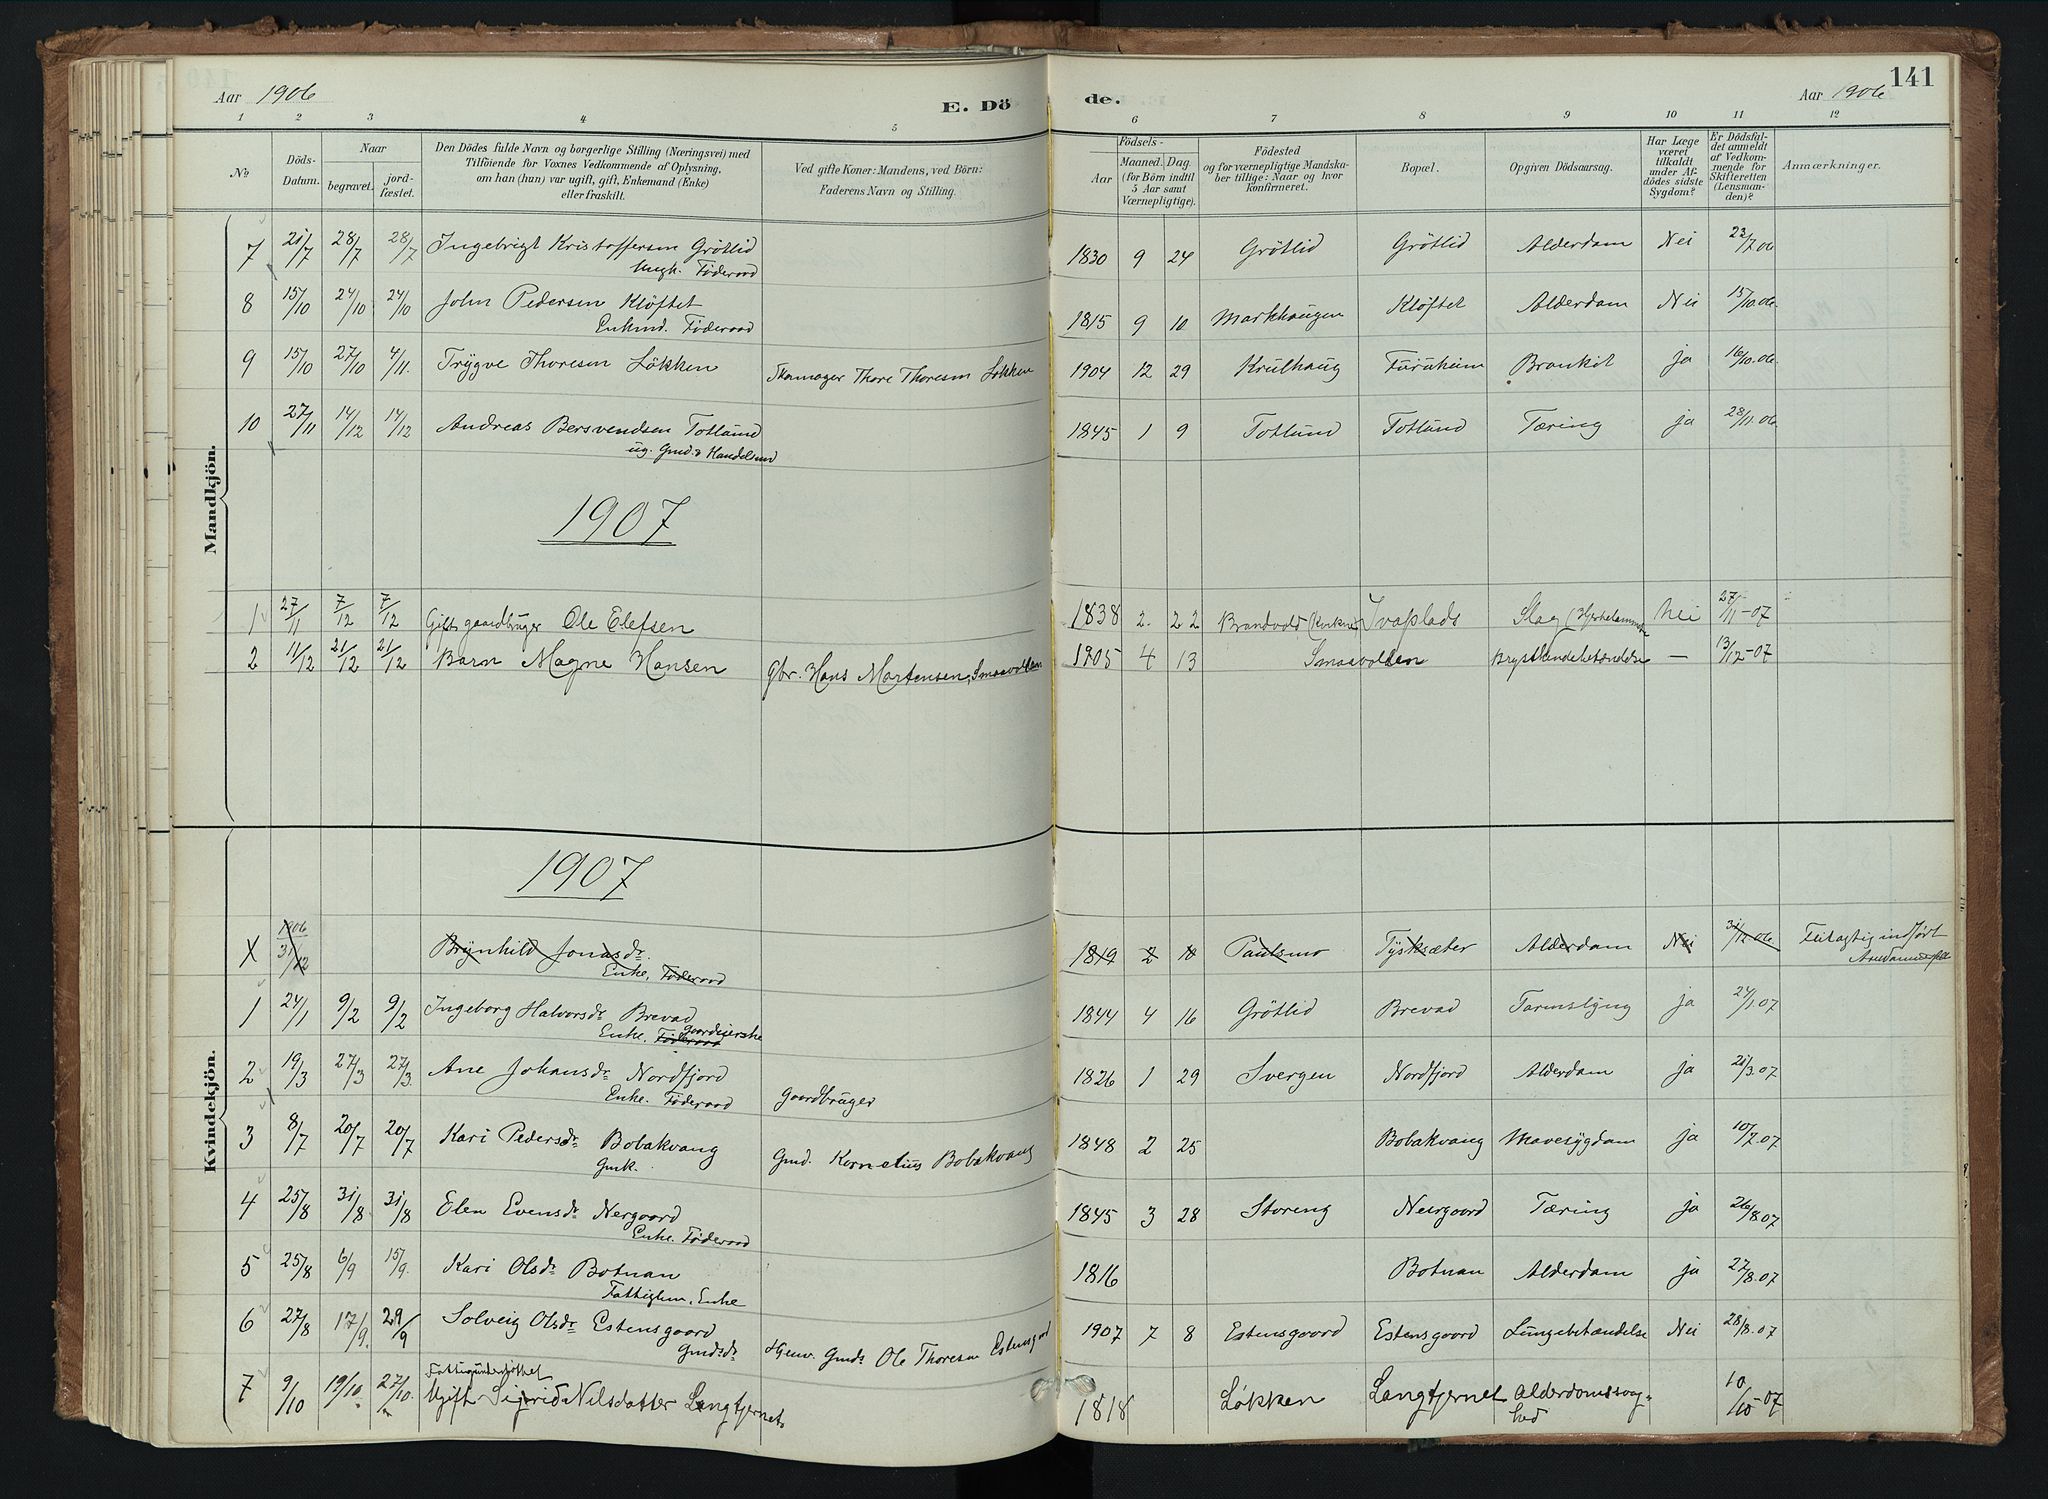 Aar 1906
E. Dö
de.
Aar 1906
141
1 2 3 4 5 6 7 8 9 10 11 12
No
Döds-
Datum.
Naar
begravet.
jord-
fæstet.
Den Dödes fulde Navn og borgerlige Stilling (Næringsvei) med
Tilföiende for Voxnes Vedkommende af Oplysning,
om han (hun) var ugift, gift, Enkemand (Enke)
eller fraskilt.
Ved gifte Koner: Mandens, ved Börn:
Faderens Navn og Stilling.
Födsels-
Aar
Maaned. Dag.
(for Börn indtil
5 Aar samt
Værnepligtige).
Födested
og for værnepligtige Mandska-
ber tillige: Naar og hvor
konfirmeret.
Bopæl.
Opgiven Dödsaarsag.
Har Læge
været
tilkaldt
under Af-
dödes sidste
Sygdom?
Er Dödsfal-
det anmeldt
af Vedkom-
mende for
Skifteretten
(Lensman-
den)?
Anmærkninger.
Mandkjön.
7 21/7 28/7 28/7 Ingebrigt Kristoffersen Grötlid 1830 9 24 Grötlid Grötlid Alderdom Nei 23/7.06
Ungk. Föderaad
8 15/10 24/10 24/10 John Pedersen Klöftet 1815 9 10 Markhaugen Klöftet Alderdom Nei 15/10.06.
Enkmd. Föderaad
9 15/10 27/10 4/11. Trygve Thoresen Lökken Skomager Thore Thoresen Lökken 1904 12 29 Krulhaug Furuheim Bronkit ja 16/10.06.
10 27/11 14/12 14/12 Andreas Bersvendsen Totlund 1845 1 9 Totlund Totlund Tæring ja 28/11.06.
ug. Gmd. & Handelsmd
1907
1 27/11 7/12 7/12 Gift gaardbruger Ole Elefsen 1838 2. 22 Brandvold Ivarplads Slag Nei 27/11-07
2 11/12 21/12 21/12 Barn Magne Hansen gbr. Hans Mortensen, Smaavollen 1905 4 13 Smaavollen Brysthindebetændelse — 13/12-07
Kvindekjön.
1907
X 1906 31/12 Brynhild Jonasdr. 1819 2 18 Paulsmo Tysksæter Alderdom Nei 31/12.06. Feilagtig indfört
Enke, Föderaad
1 24/1 9/2 9/2 Ingeborg Halvorsdr Brevad 1844 4 16 Grötlid Brevad Tarmslyng ja 24/1.07
Enke. Föderaad Gaardeierske
2 19/3 27/3 27/3. Ane Johansdr Nordfjord Gaardbruger 1826 1 29 Svergen Nordfjord Alderdom ja 21/3.07
Enke. Föderaad
3 8/7 20/7 20/7 Kari Pedersdr Bobakvang Gmd. Kornelius Bobakvang 1848 2 25 Bobakvang Mavesygdom ja 10/7.07
Gmk.
4 25/8 31/8 31/8 Elen Evensdr Nergaard 1845 3 28 Storeng Neirgaard Tæring ja 26/8.07
Enke. Föderaad
5 25/8 6/9 15/9. Kari Olsdr Botnan 1816 Botnan Alderdom ja 27/8.07
Fattiglem, Enke
6 27/8 17/9. 29/9 Solveig Olsdr Estensgaard Gmds Ole Thoresen Estensgaard 1907 7 8 Estensgaard Estensgaard Lungebetændelse Nei 28/8.07
Gmdsdr
Fattigunderstöttet
7 9/10 19/10. 27/10. Ugift Sigrid Nilsdatter Langtjernet 1818 Løkken Langtjernet Alderdomssvag-
hed 10/10-07